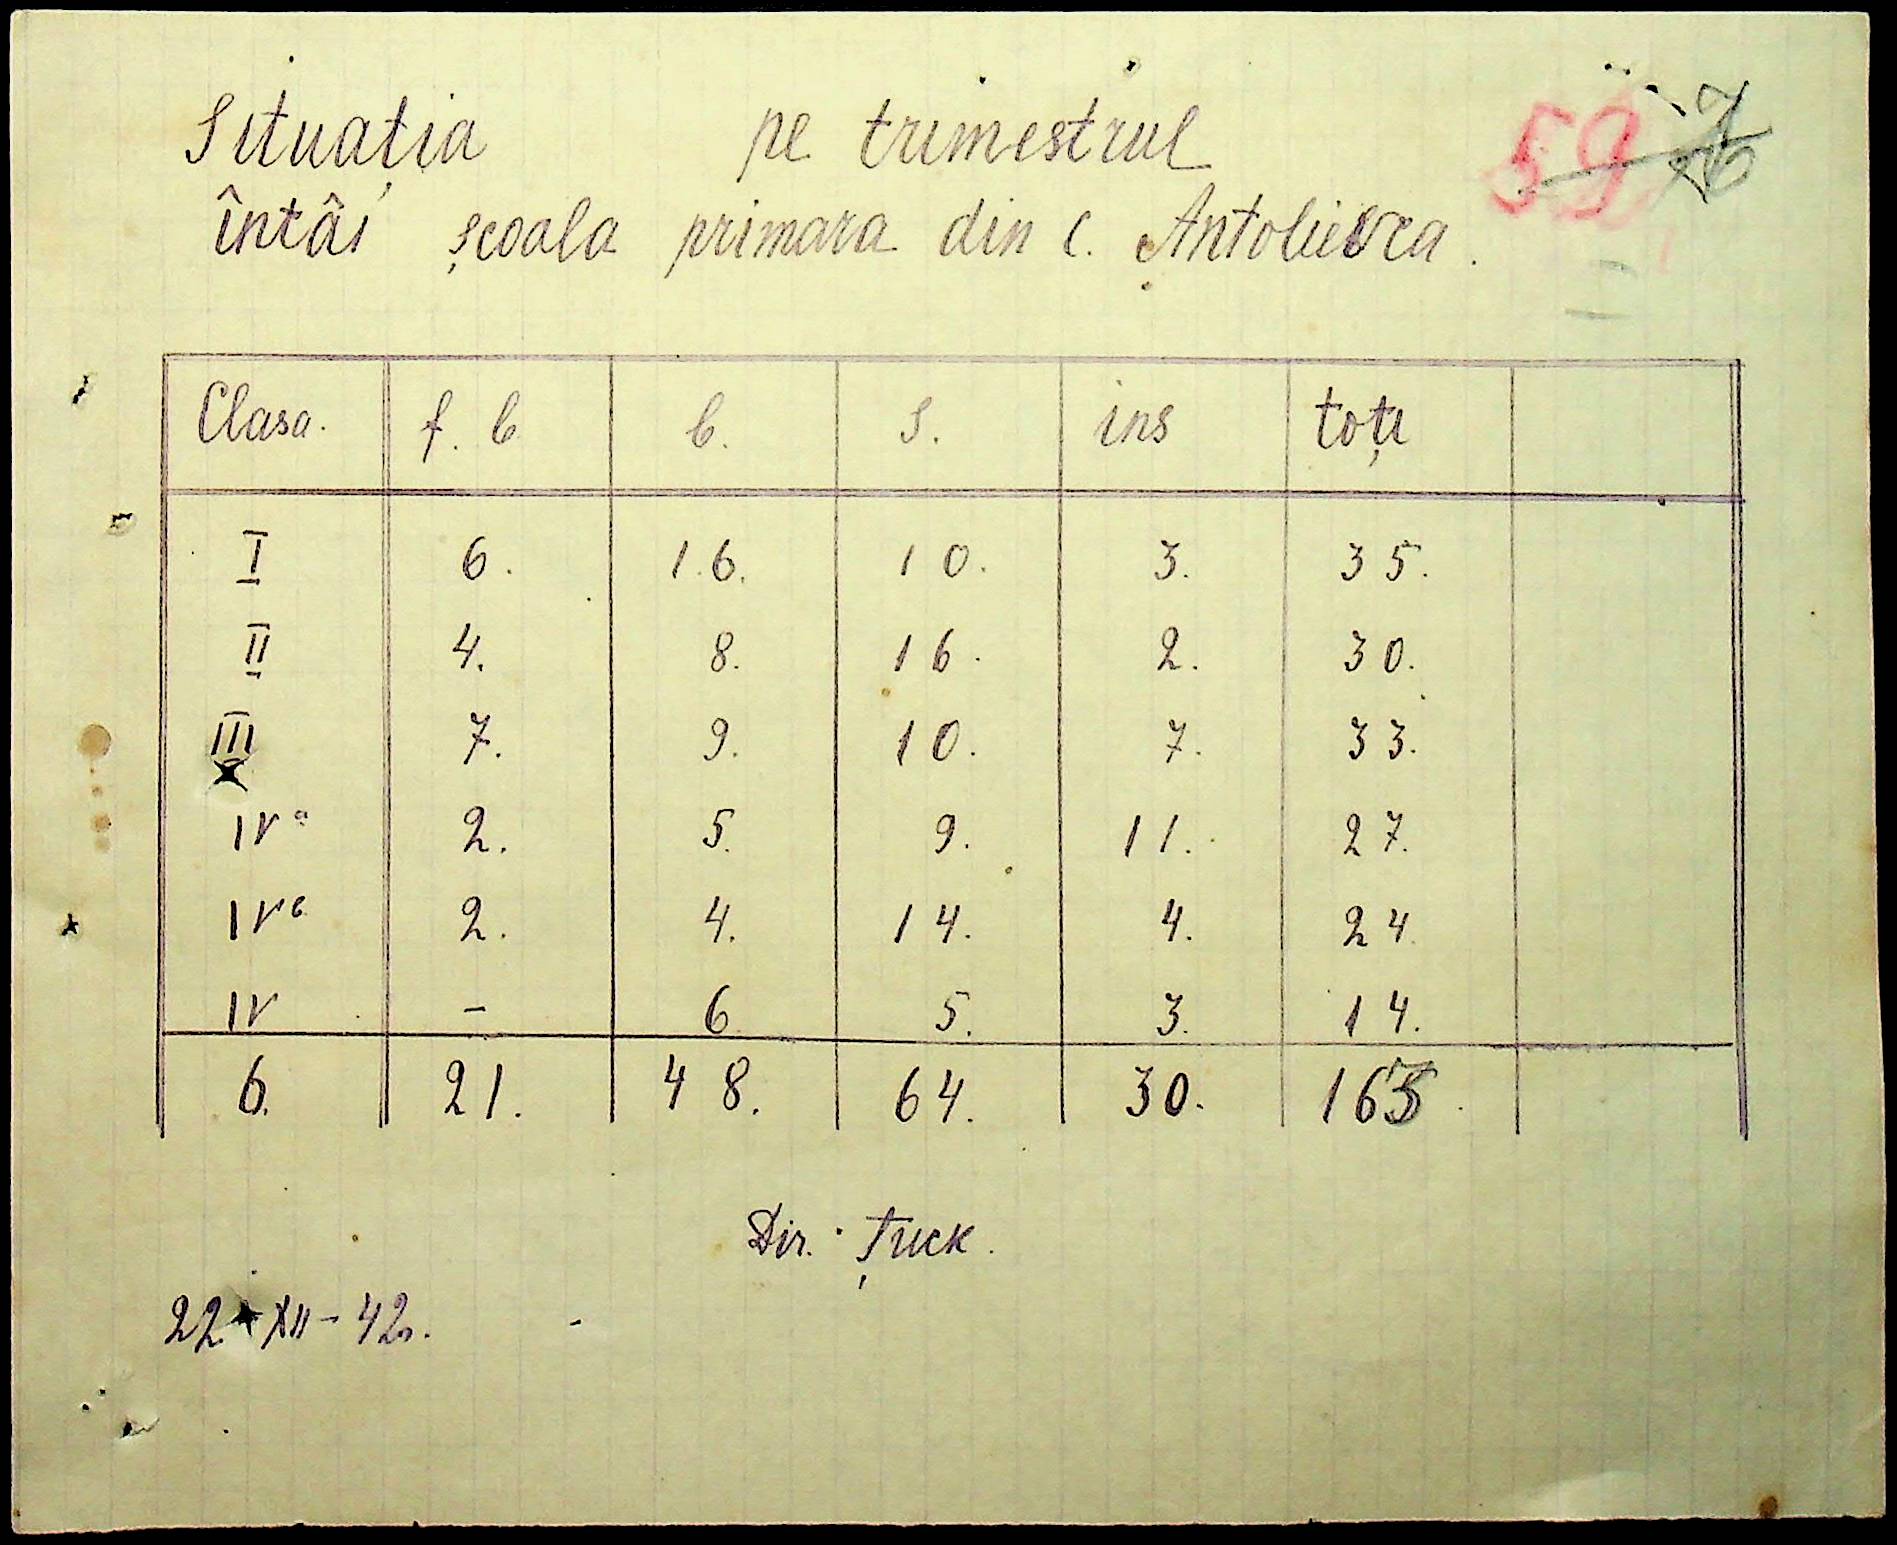 59
Situația pe trimestrul
întâi școala primara din c. Antolievca.
Clasa. f. b b. s. ins toți
I 6. 16. 10. 3. 35.
II 4. 8. 16. 2. 30.
III 7. 9. 10. 7. 33.
IV a 2. 5. 9. 11. 27.
IV b 2. 4. 14. 4. 24
IV - 6 5. 3. 14.
6. 21. 48. 64. 30. 163.
Dir. Țuck.
22 XII - 42.